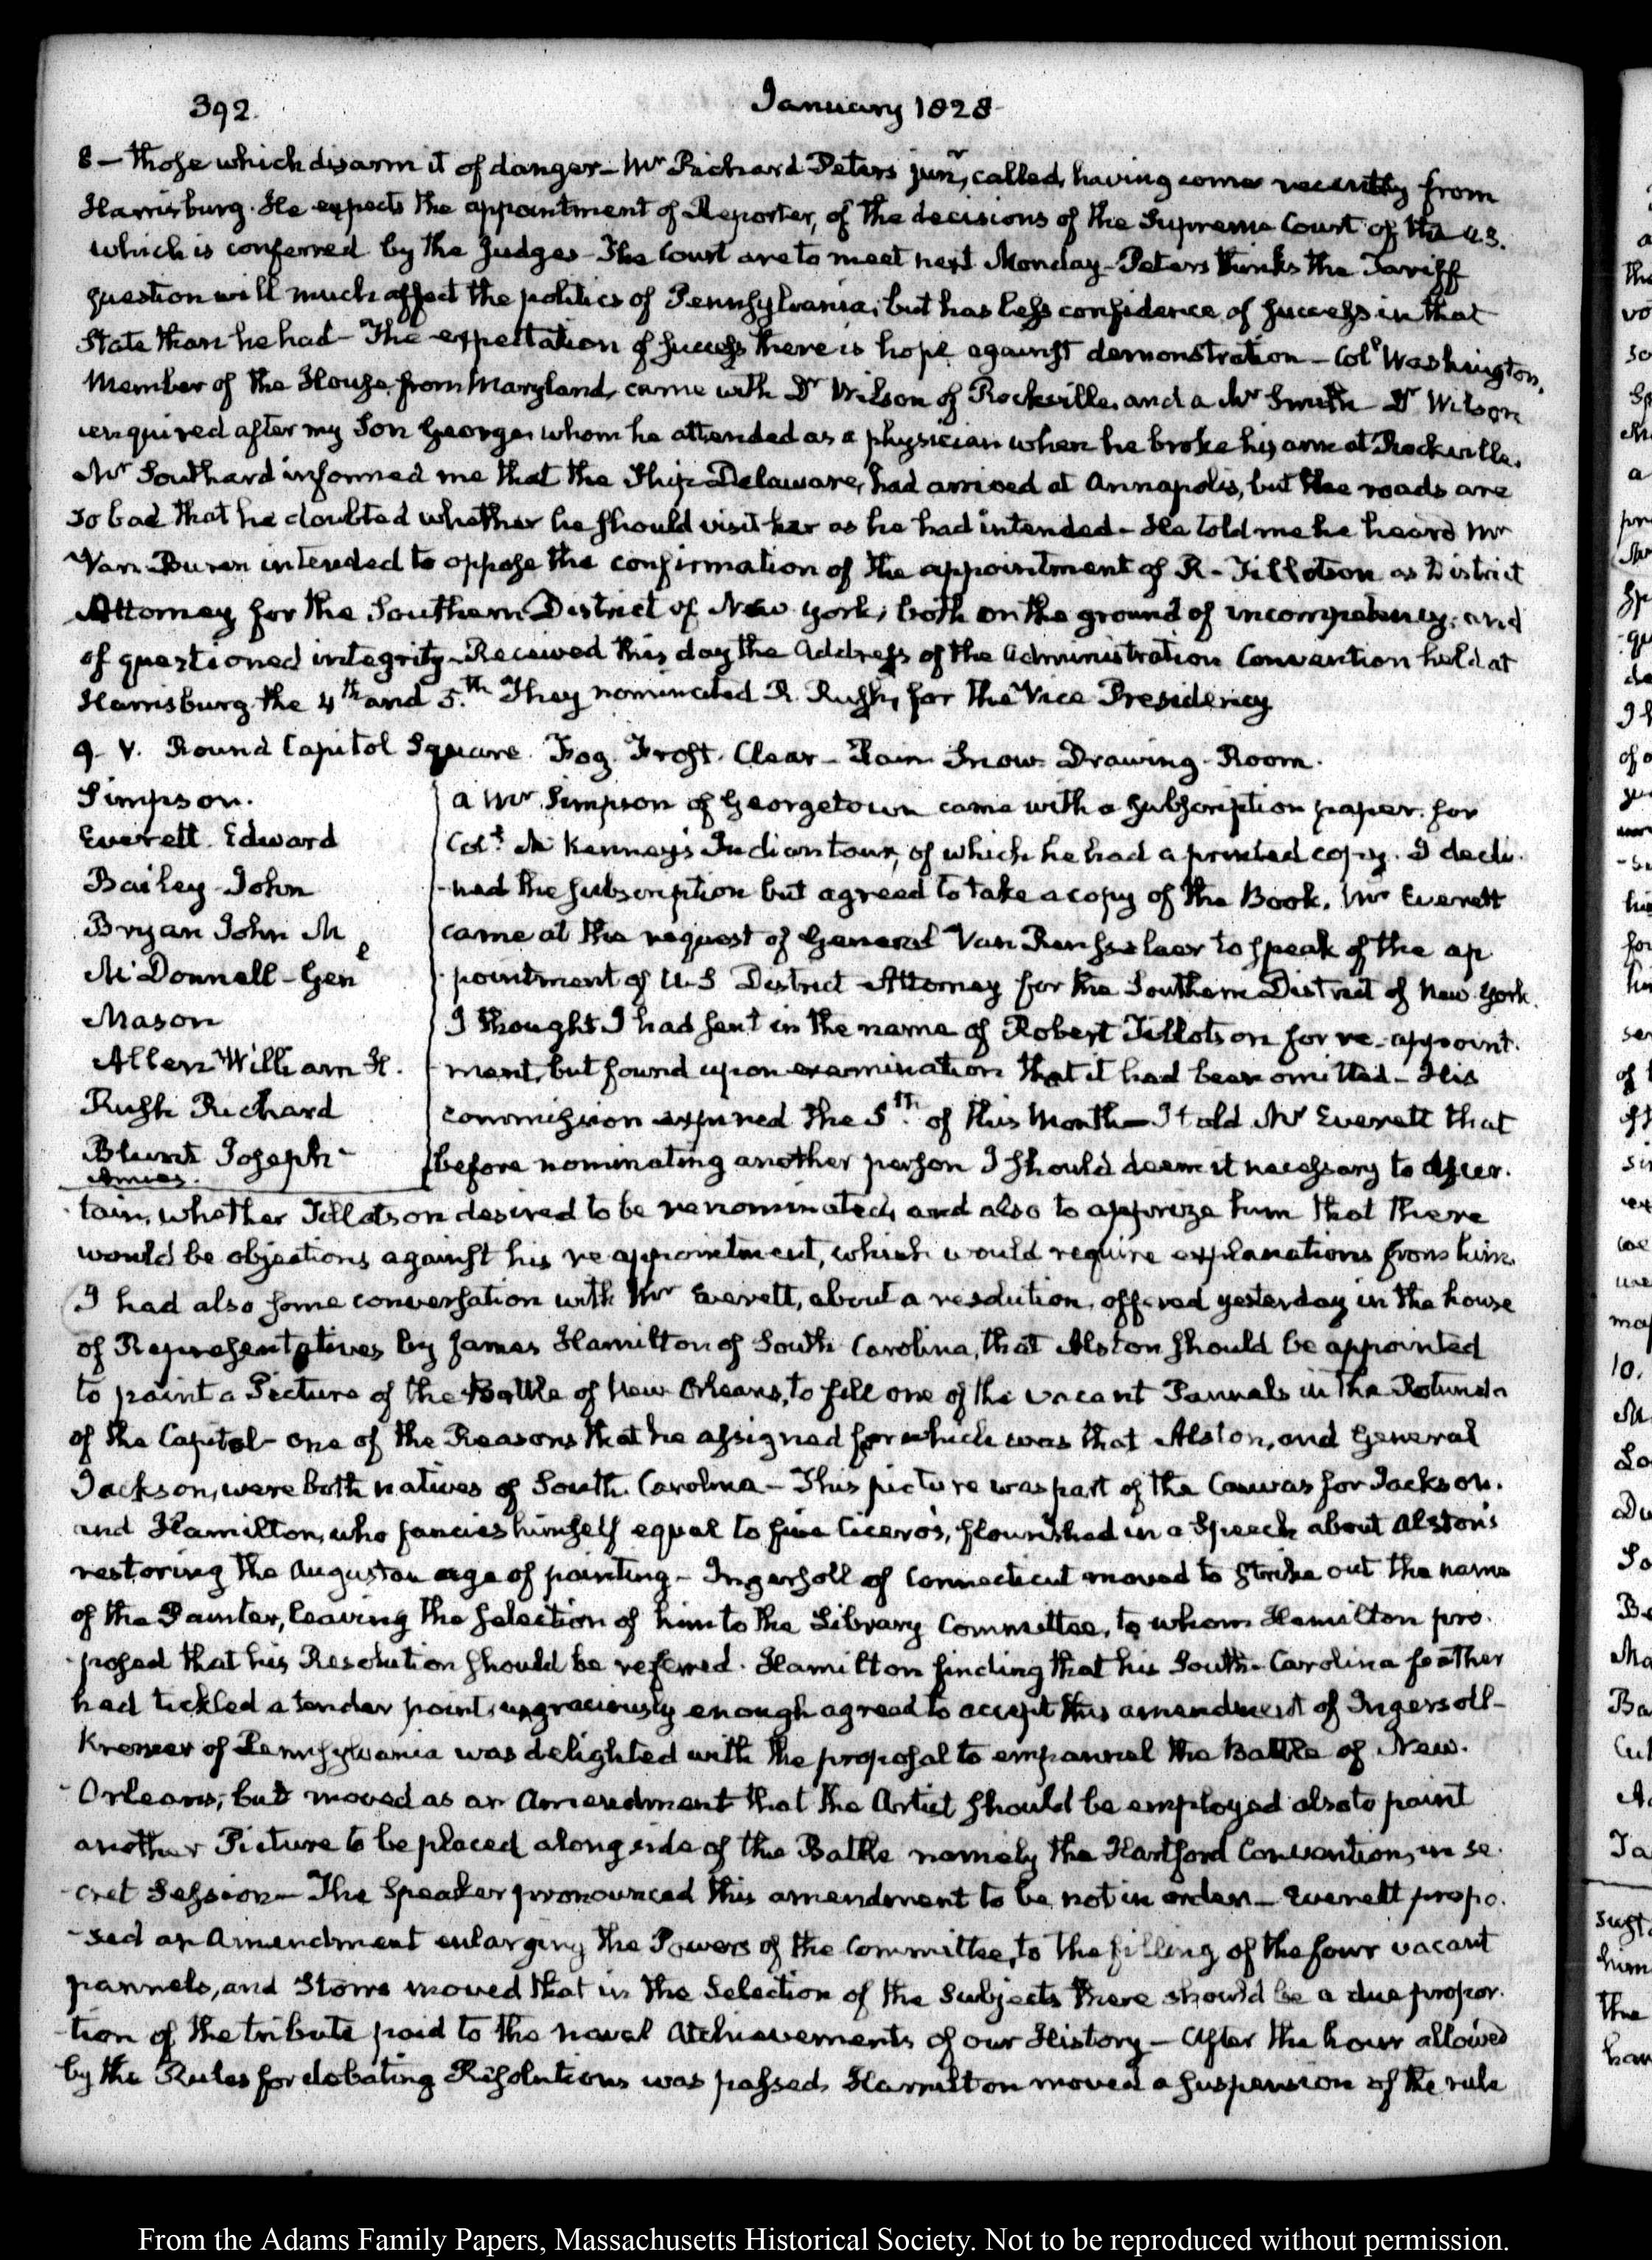 392.
January 1828
8 — those which disarm it of danger — Mr Richard Peters junr, called, having come recently from
Harrisburg. He expects the appointment of Reporter, of the decisions of the Supreme Court of the U.S.
which is conferred by the Judges — The Court are to meet next Monday — Peters thinks the Tariff
question will much affect the politics of Pennsylvania; but has less confidence of success in that
State than he had — The expectation of success there is hope against demonstration — Coll Washington,
Member of the House from Maryland, came with Dr Wilson of Rockville, and a Mr Smith — Dr Wilson
enquired after my Son George, whom he attended as a physician when he broke his arm at Rockville.
Mr Southard informed me that the Ship Delaware, had arrived at Annapolis, but the roads are
so bad that he doubted whether he should visit her as he had intended — He told me he heard Mr
Van Buren intended to oppose the confirmation of the appointment of R. Tillotson as District
Attorney for the Southern District of New York, both on the ground of incompetency, and
of questioned integrity — Received this day the Address of the Administration Convention held at
Harrisburg the 4th and 5.th They nominated R. Rush, for the Vice Presidency
9. V. Round Capitol Square. Fog. Frost. Clear — Rain Snow. Drawing-Room.
Simpson.
Everett. Edward
Bailey John
Bryan John M
McDonnell — Genl
Mason
Allen William H.
Rush Richard
Blunt Joseph
a Mr Simpson of Georgetown came with a subscription paper for
Coll McKenney's Indian tour, of which he had a printed copy. I decli-
-ned the subscription but agreed to take a copy of the Book. Mr Everett
came at the request of General Van Rensselaer to speak of the ap
-pointment of U.S District Attorney for the Southern District of New York.
I thought I had sent in the name of Robert Tillotson for re-appoint-
-ment, but found upon examination that it had been omitted — His
commission expired the 5th of this Month — I told Mr Everett that
before nominating another person I should deem it necessary to ascer-
-tain, whether Tillotson desired to be renominated, and also to apprize him that there
would be objections against his re appointment, which would require explanations from him.
I had also some conversation with Mr Everett, about a resolution, offered yesterday in the house
of Representatives by James Hamilton of South Carolina, that Alston should be appointed
to paint a Picture of the Battle of New Orleans, to fill one of the vacant Pannels in the Rotunda
of the Capitol — one of the Reasons that he assigned for which was that Alston, and General
Jackson, were both natives of South Carolina — This picture was part of the Canvas for Jackson.
and Hamilton, who fancies himself equal to five Cicero's, flourished in a Speech about Alston's
restoring the Augustan age of painting — Ingersoll of Connecticut moved to strike out the name
of the Painter, leaving the selection of him to the Library Committee, to whom Hamilton pro-
-posed that his Resolution should be referred. Hamilton finding that his South-Carolina feather
had tickled a tender point, ungraciously enough agreed to accept this amendment of Ingersoll —
Kremer of Pennsylvania was delighted with the proposal to empannel the Battle of New-
-Orleans; but moved as an Amendment that the Artist should be employed also to paint
another Picture to be placed along side of the Battle namely the Hartford Convention, in se-
-cret Session — The Speaker pronounced this amendment to be not in order — Everett propo-
-sed an Amendment enlarging the Powers of the Committee, to the filling of the four vacant
pannels, and Storrs moved that in the Selection of the Subjects there should be a due propor-
-tion of the tribute paid to the naval Atchievements of our History — After the hour allowed
by the Rules for debating Resolutions was passed, Hamilton moved a suspension of the rule
From the Adams Family Papers, Massachusetts Historical Society. Not to be reproduced without permission.